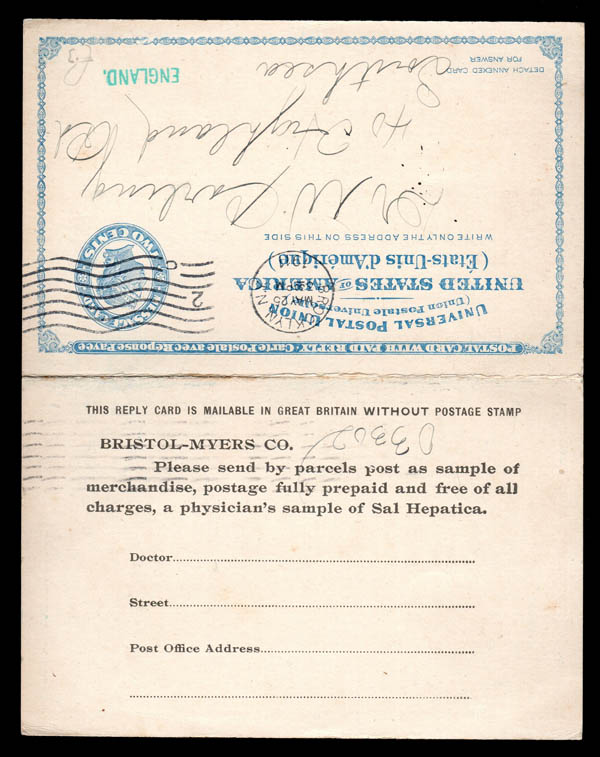 POSTAL CARD WITH PAID REPLY.- Carte Postale avec Réponse Payée
UNIVERSAL POSTAL UNION
(Union Postale Universelle)
UNITED STATES OF AMERICA
(États-Unis d'Amérique)
BROOKLYN
MAY 25
2
TWO CENTS
WRITE ONLY THE ADDRESS ON THIS SIDE
Dr W Darling
40 Highland Rd
Southsea
Eng
ENGLAND.
DETACH ANNEXED CARD
FOR ANSWER
THIS REPLY CARD IS MAILABLE IN GREAT BRITAIN WITHOUT POSTAGE STAMP
BRISTOL-MYERS CO.
Please send by parcels post as sample of
merchandise, postage fully prepaid and free of all
charges, a physician's sample of Sal Hepatica.
Doctor
Street
Post Office Address